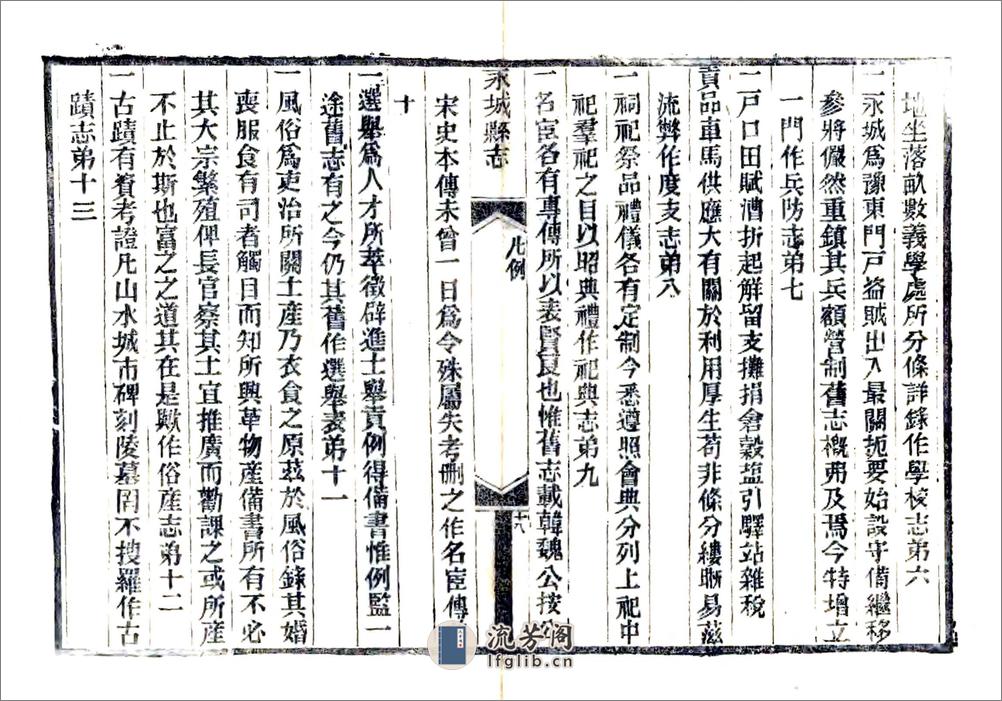 地坐落畝數義學處所分條詳錄作學校志弟六
一永城爲豫東門戸盜賊出入最關扼要始設守備繼移
參將儼然重鎮其兵額營制舊志槪弗及焉今特增立
一門作兵防志弟七
一戸口田賦漕折起解留支攤捐倉穀鹽引驛站雜稅
貢品車馬供應大有關於利用厚生苟非條分縷晰易滋
流弊作度支志弟八
一祠祀祭品禮儀各有定制今悉遵照會典分列上祀中
祀羣祀之目以昭典禮作祀典志弟九
一名宦各有專傳所以表賢良也惟舊志載韓魏公按
永城縣志
凡例
十八
宋史本傳未曾一日爲令殊屬失考刪之作名宦傳
十
一選舉爲人才所萃徵辟進士舉貢例得備書惟例監一
途舊志有之今仍其舊作選舉表弟十一
一風俗爲吏治所關土產乃衣食之原茲於風俗錄其婚
喪服食有司者觸目而知所興革物產備書所有不必
其大宗繁殖俾長官察其土宜推廣而勸課之或所產
不止於斯也富之之道其在是歟作俗產志弟十二
一古蹟有資考證凡山水城市碑刻陵墓罔不搜羅作古
蹟志弟十三
流芳阁
lfglib.cn